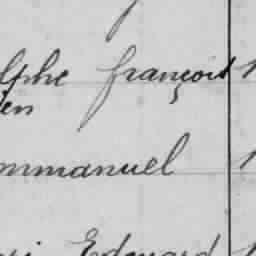 lphe françois
en
mmanuel
Edouard